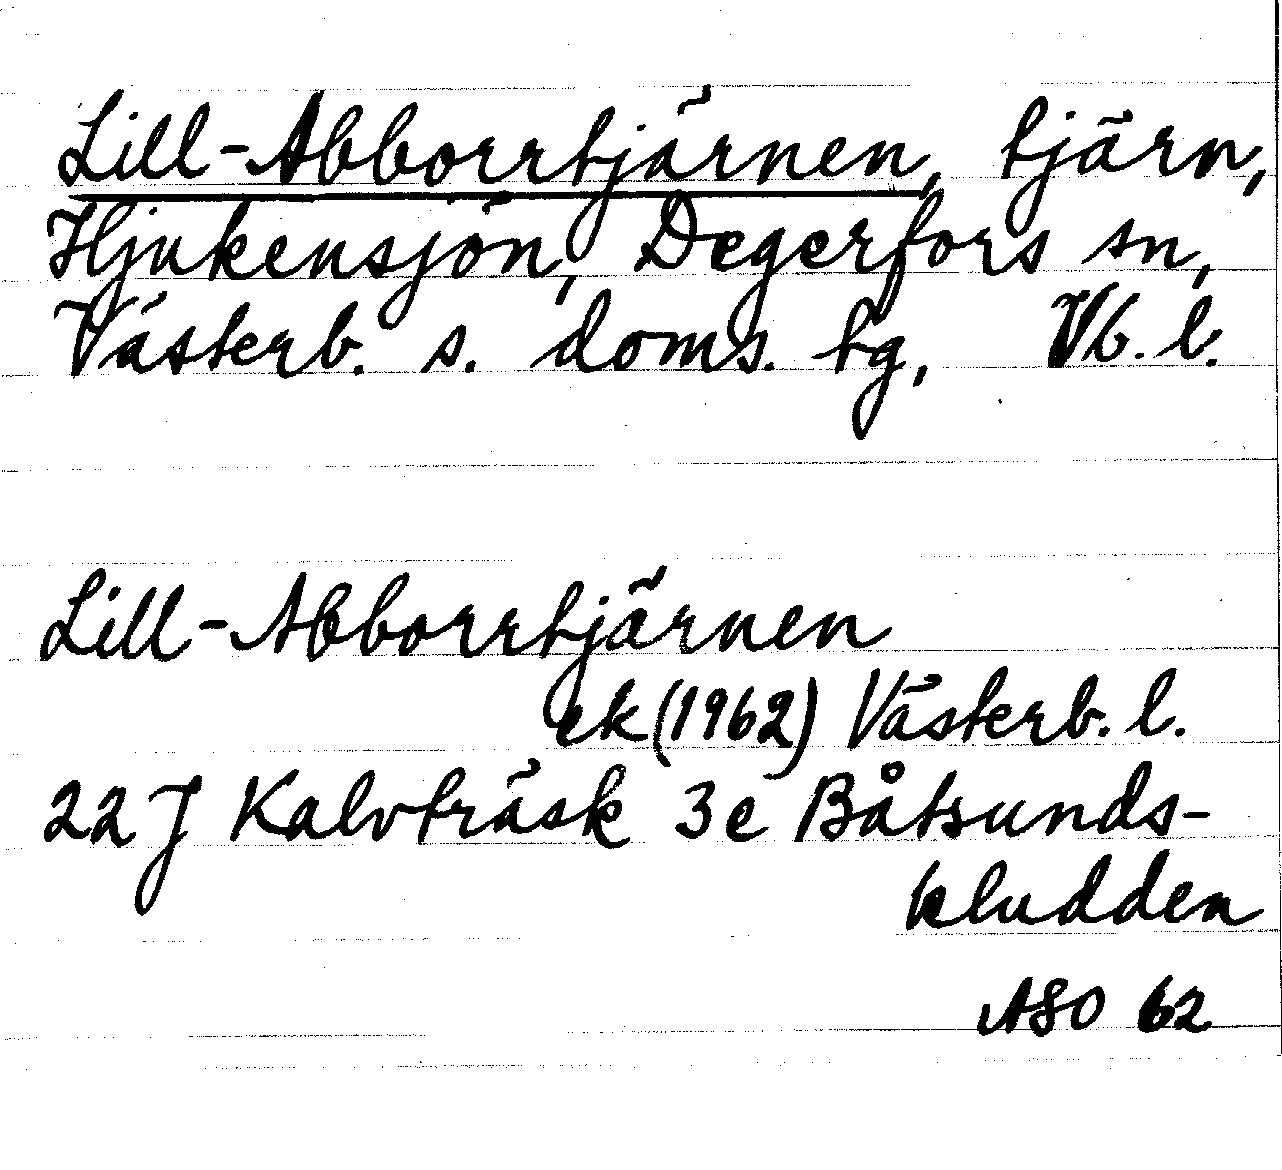 Lill-Abborrtjärnen, tjärn,
Hjukensjön, Degerfors sn,
Västerb. s. doms. tg, Vb. l.
Lill-Abborrtjärnen
ek (1962) Västerb. l.
22 J Kalvträsk 3e Båtsunds-
kludden
ASO 62